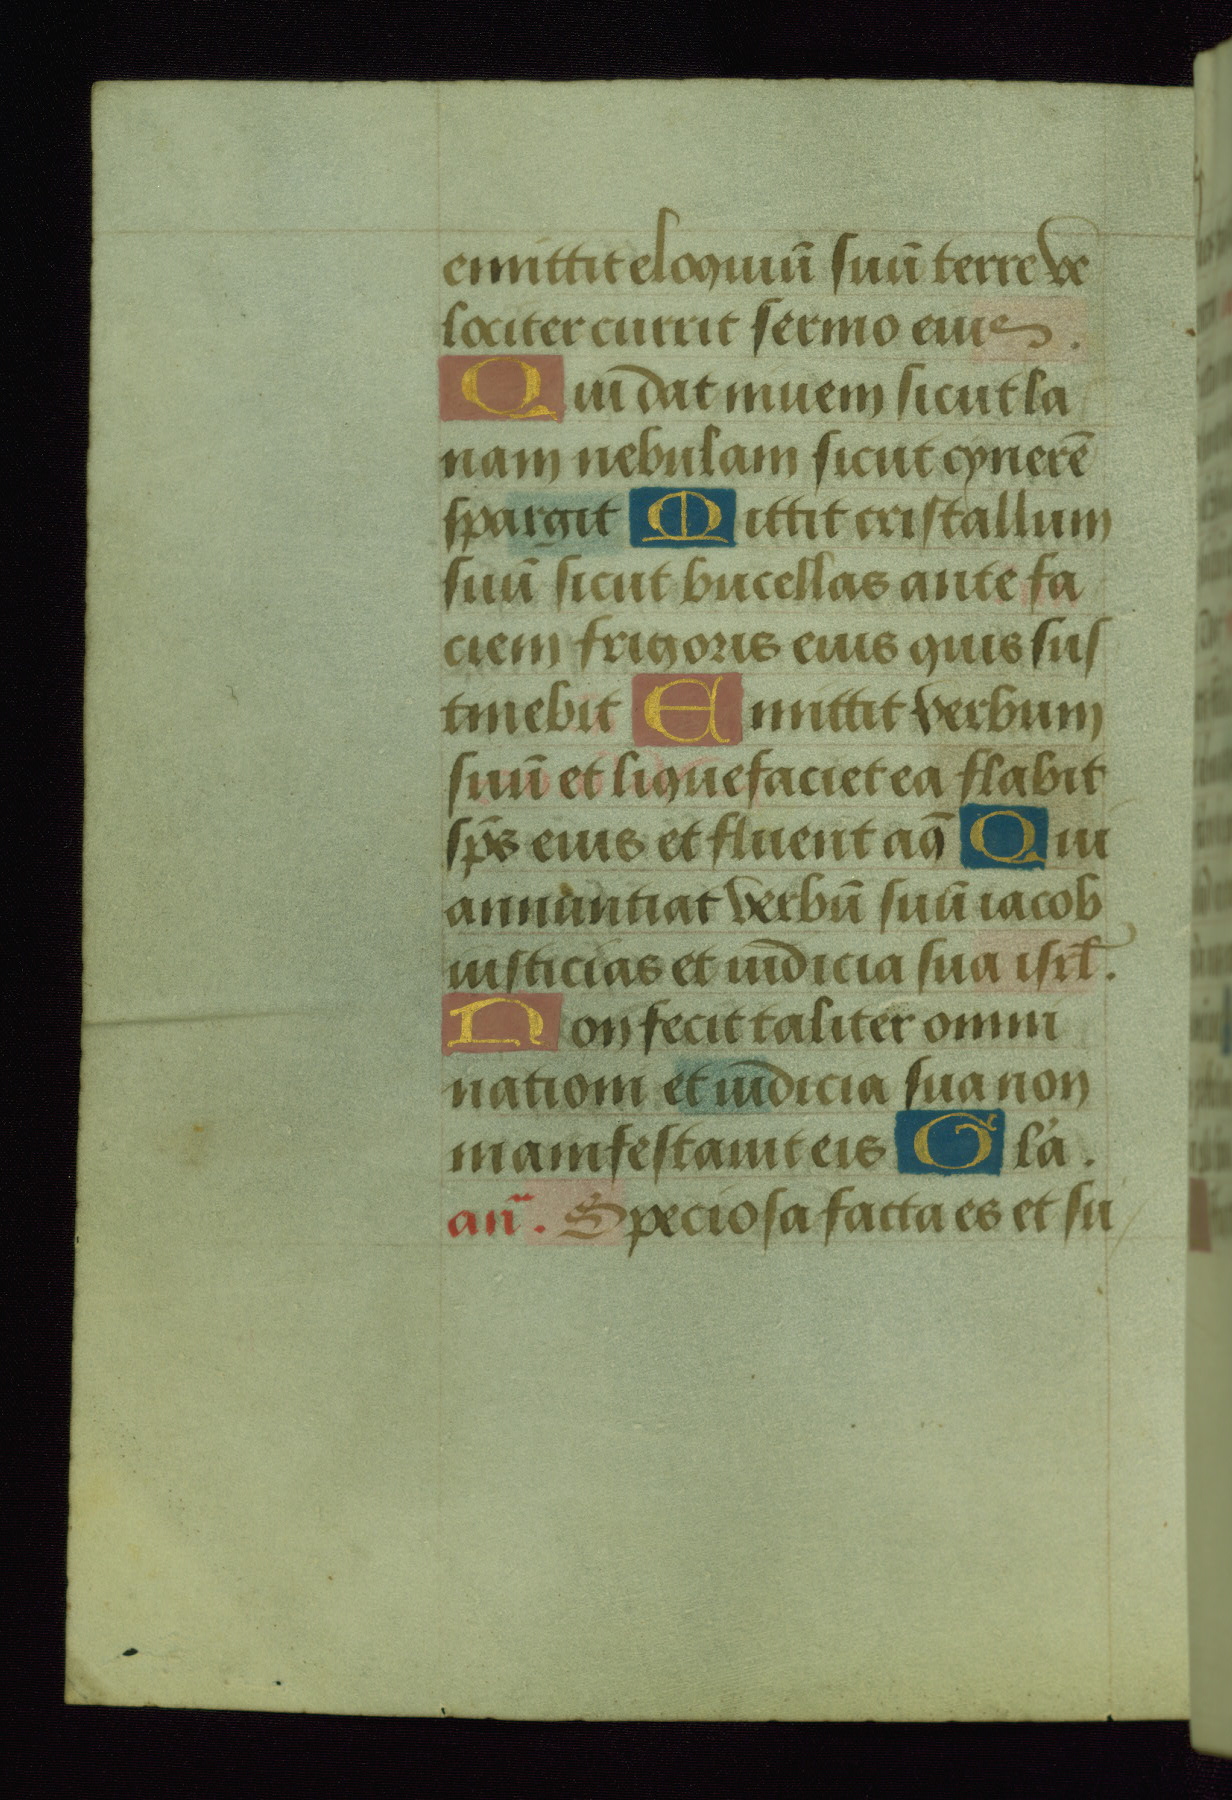 emittit eloquiū suū terre ve
lociter currit sermo eius.
Qui dat niuem sicut la
nam nebulam sicut cynerē
spargit Mittit cristallum
suū sicut bucellas ante fa
ciem frigoris eius quis sus
tinebit Emittit verbum
suū et liquefaciet ea flabit
sp̄s eius et fluent aq̄ Qui
annuntiat verbū suū iacob
iusticias et iudicia sua isrl̄.
Non fecit taliter omni
nationi et iudicia sua non
manifestauit eis Gla.
an̄. Speciosa facta es et su